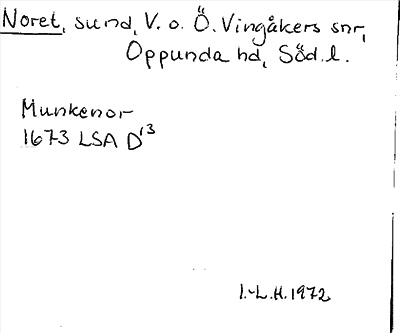 Noret, sund, V. o. Ö. Vingåkers snr,
Oppunda hd, Söd. l.
Munkenor
1673 LSA D¹³
I.-L.H. 1972